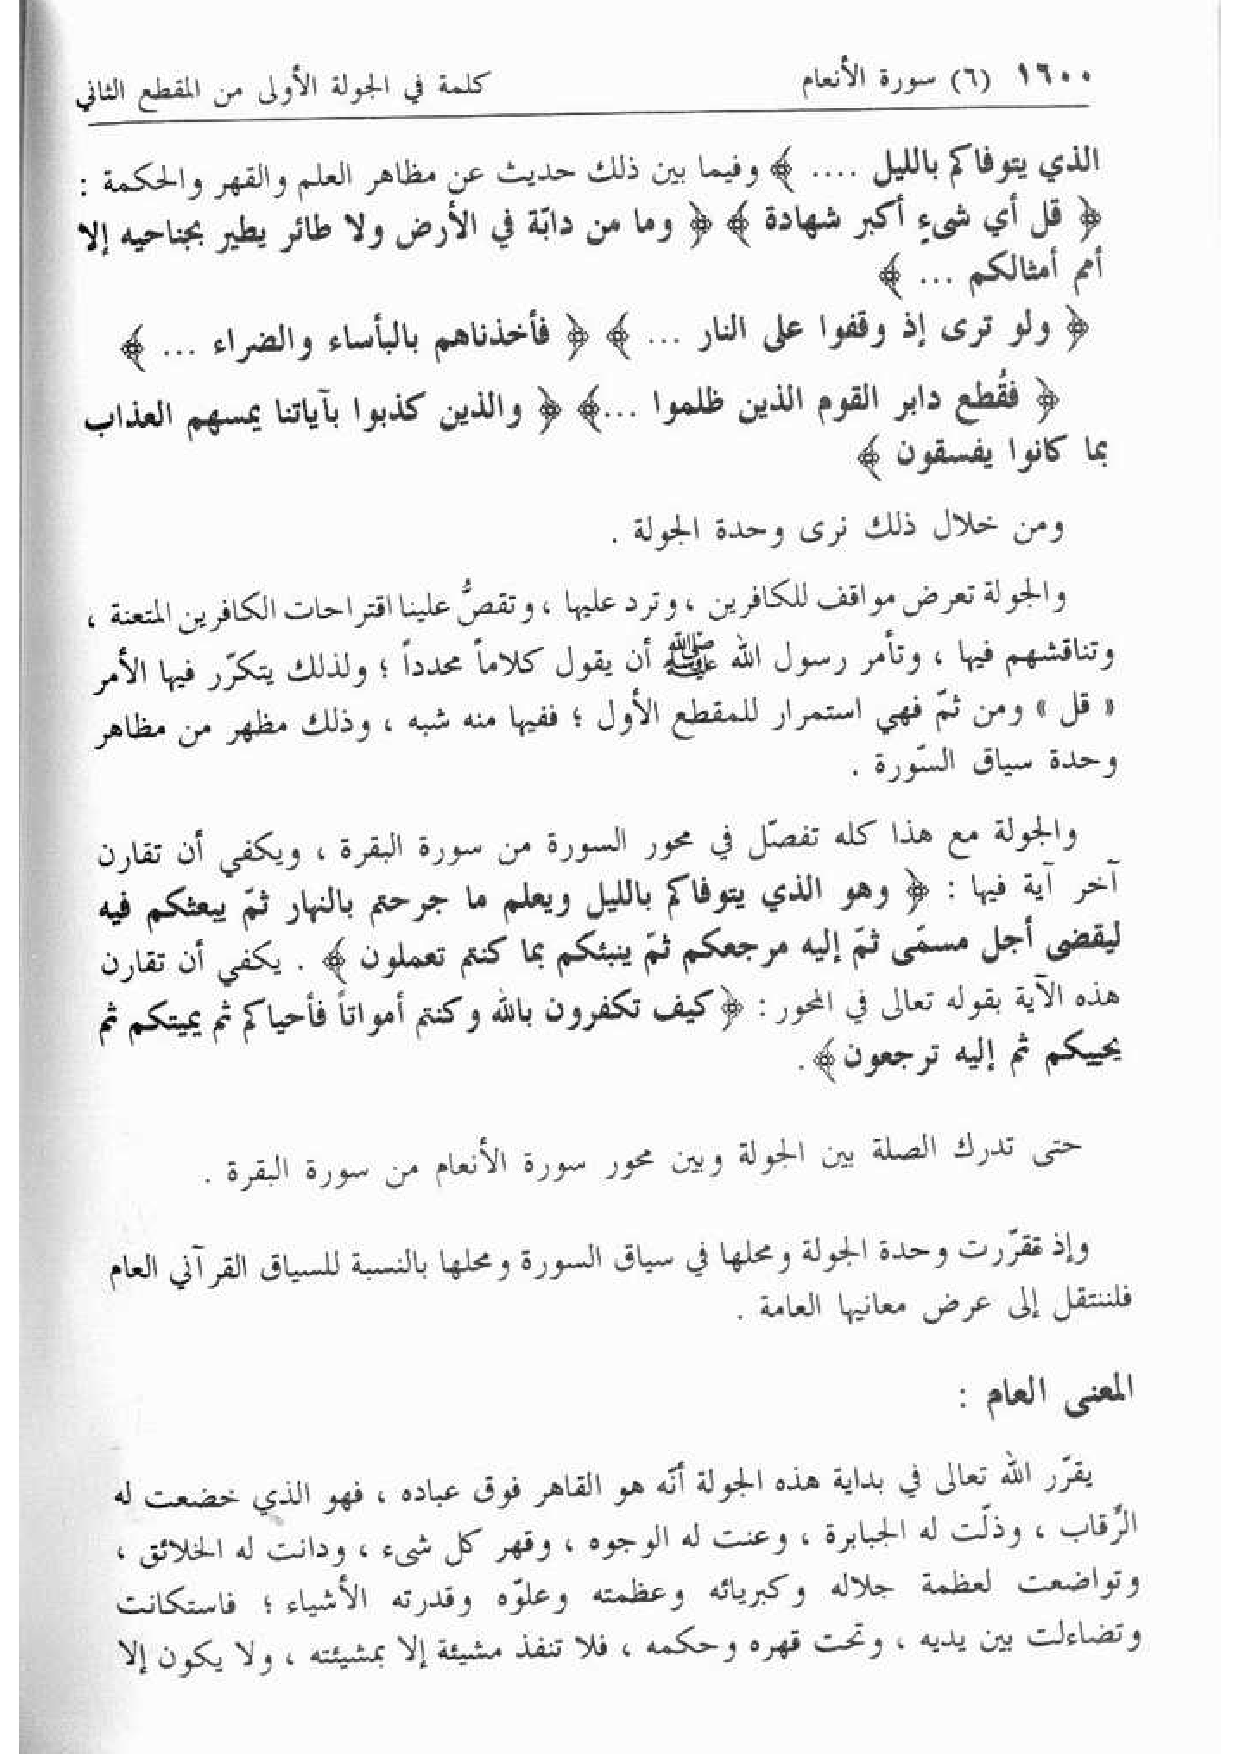 ١٦٠٠ (٦) سورة الأنعام كلمة في الجولة الأولى من المقطع الثاني
الذي يتوفاكم بالليل .... ﴾ وفيما بين ذلك حديث عن مظاهر العلم والقهر والحكمة :
﴿ قل أي شيءٍ أكبر شهادة ﴾ ﴿ وما من دابّة في الأرض ولا طائر يطير بجناحيه إلا
أمم أمثالكم ... ﴾
﴿ ولو ترى إذ وقفوا على النار ... ﴾ ﴿ فأخذناهم بالبأساء والضراء ... ﴾
﴿ فقُطع دابر القوم الذين ظلموا ...﴾ ﴿ والذين كذبوا بآياتنا يمسهم العذاب
بما كانوا يفسقون ﴾
ومن خلال ذلك نرى وحدة الجولة .
والجولة تعرض مواقف للكافرين ، وترد عليها ، وتقصُّ علينا اقتراحات الكافرين المتعنة ،
وتناقشهم فيها ، وتأمر رسول الله ﷺ أن يقول كلاماً محدداً ؛ ولذلك يتكرّر فيها الأمر
« قل » ومن ثمّ فهي استمرار للمقطع الأول ؛ ففيها منه شبه ، وذلك مظهر من مظاهر
وحدة سياق السّورة .
والجولة مع هذا كله تفصّل في محور السورة من سورة البقرة ، ويكفي أن تقارن
آخر آية فيها : ﴿ وهو الذي يتوفاكم بالليل ويعلم ما جرحتم بالنهار ثمّ يبعثكم فيه
ليقضى أجل مسمّى ثمّ إليه مرجعكم ثمّ ينبئكم بما كنتم تعملون ﴾ . يكفي أن تقارن
هذه الآية بقوله تعالى في المحور : ﴿ كيف تكفرون بالله وكنتم أمواتاً فأحياكم ثم يميتكم ثم
يحييكم ثم إليه ترجعون ﴾ .
حتى تدرك الصلة بين الجولة وبين محور سورة الأنعام من سورة البقرة .
وإذ تقرّرت وحدة الجولة ومحلها في سياق السورة ومحلها بالنسبة للسياق القرآني العام
فلننتقل إلى عرض معانيها العامة .
المعنى العام :
يقرّر الله تعالى في بداية هذه الجولة أنّه هو القاهر فوق عباده ، فهو الذي خضعت له
الرّقاب ، وذلّت له الجبابرة ، وعنت له الوجوه ، وقهر كل شيء ، ودانت له الخلائق ،
وتواضعت لعظمة جلاله وكبريائه وعظمته وعلوّه وقدرته الأشياء ؛ فاستكانت
وتضاءلت بين يديه ، وتحت قهره وحكمه ، فلا تنفذ مشيئة إلا بمشيئته ، ولا يكون إلا